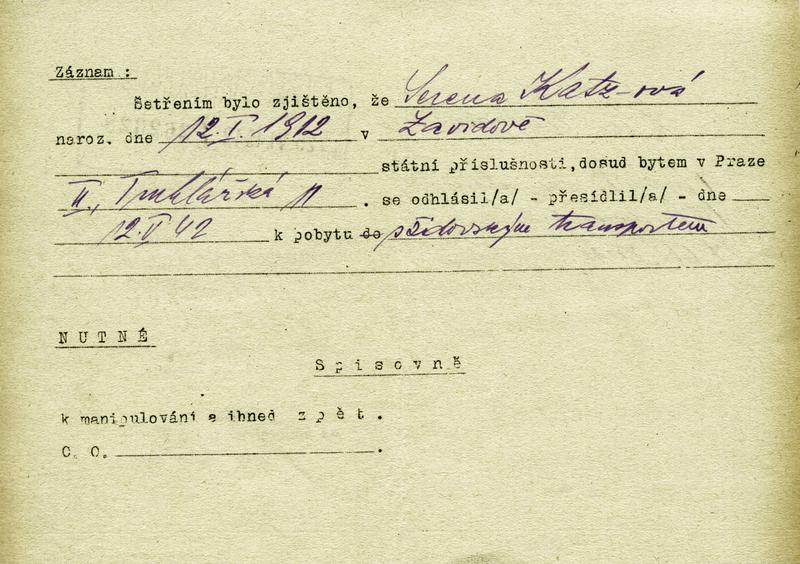 Záznam :
Šetřením bylo zjištěno, že Serena Katz-ová
naroz. dne 12.I.1912 v Závidově
státní příslušnosti, dosud bytem v Praze
II., Truhlářská 11 . se odhlásil/a/ - přesídlil/a/ - dne
12.V 42 k pobytu do s židovským transportem
NUTNÉ
Spisovně
k manipulování a ihned zpět.
C. O. .